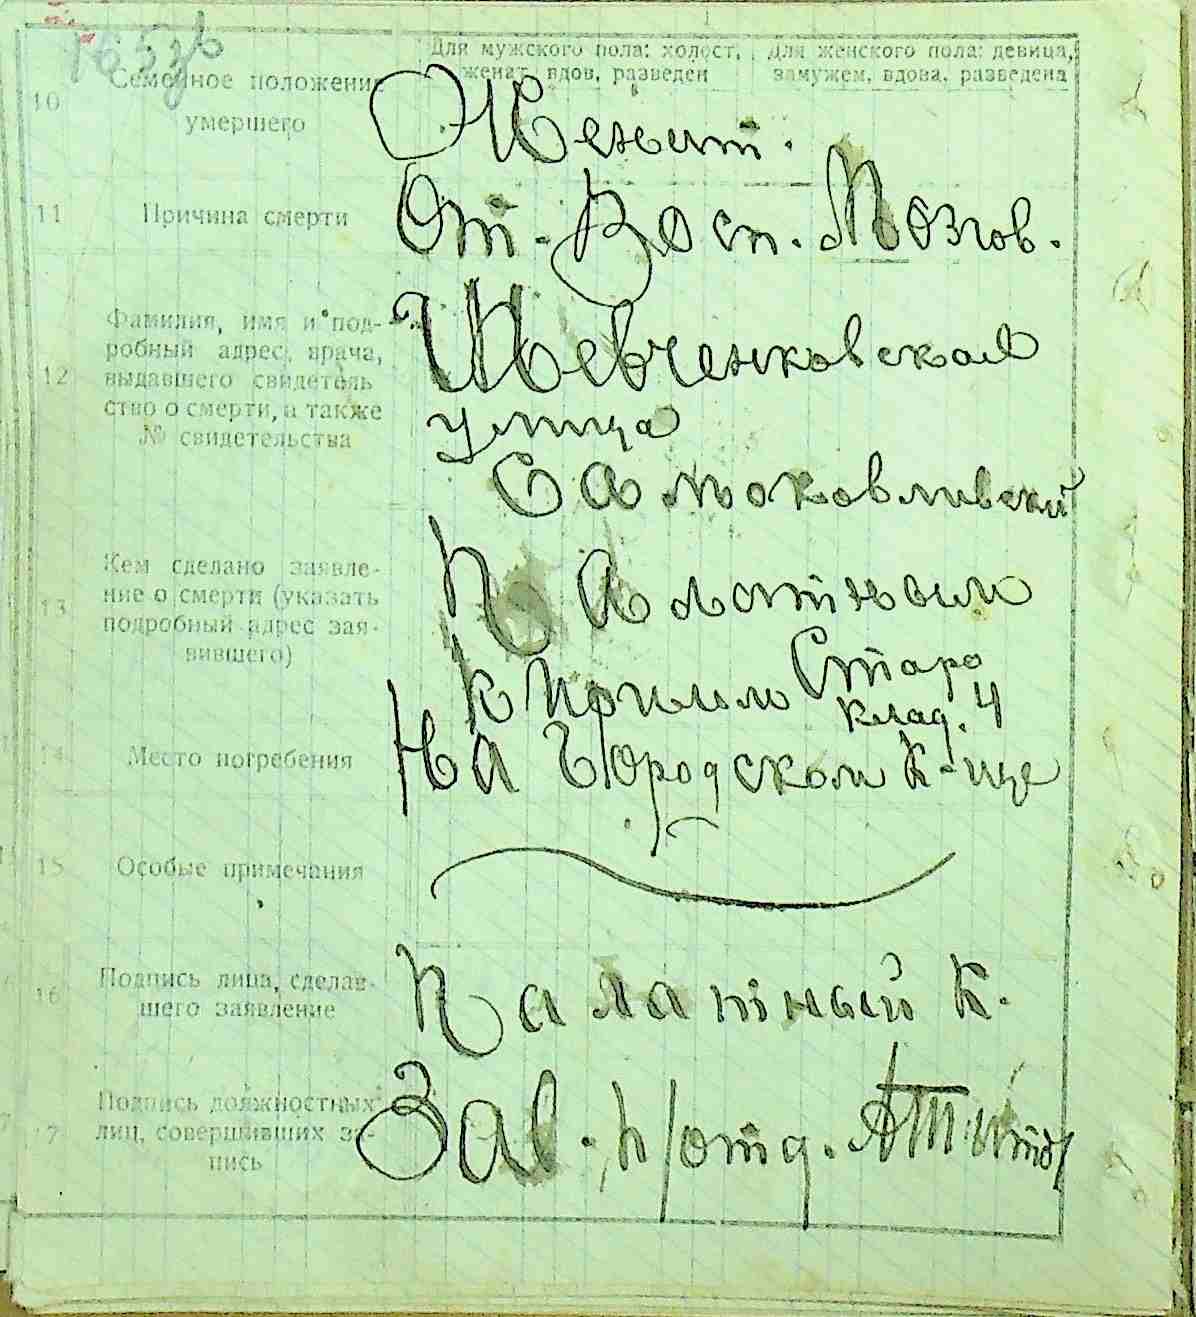 Для мужского пола: холост, женат, вдов, разведен
Для женского пола: девица, замужем, вдова, разведена
10 Семейное положение умершего
Женит.
11 Причина смерти
От. Восп. Мозгов.
12 Фамилия, имя и под-
робный адрес, врача,
выдавшего свидетель
ство о смерти, а также
№ свидетельства
Шевченковская
улица
13 Кем сделано заявле-
ние о смерти (указать
подробный адрес зая-
вившего)
Клад. 4
14 Место погребения
На Городском К-ще
15 Особые примечания
16 Подпись лица, сделав-
шего заявление
Палатный К.
17 Подпись должностных
лиц, совершивших за-
пись
Зав. п/отд.